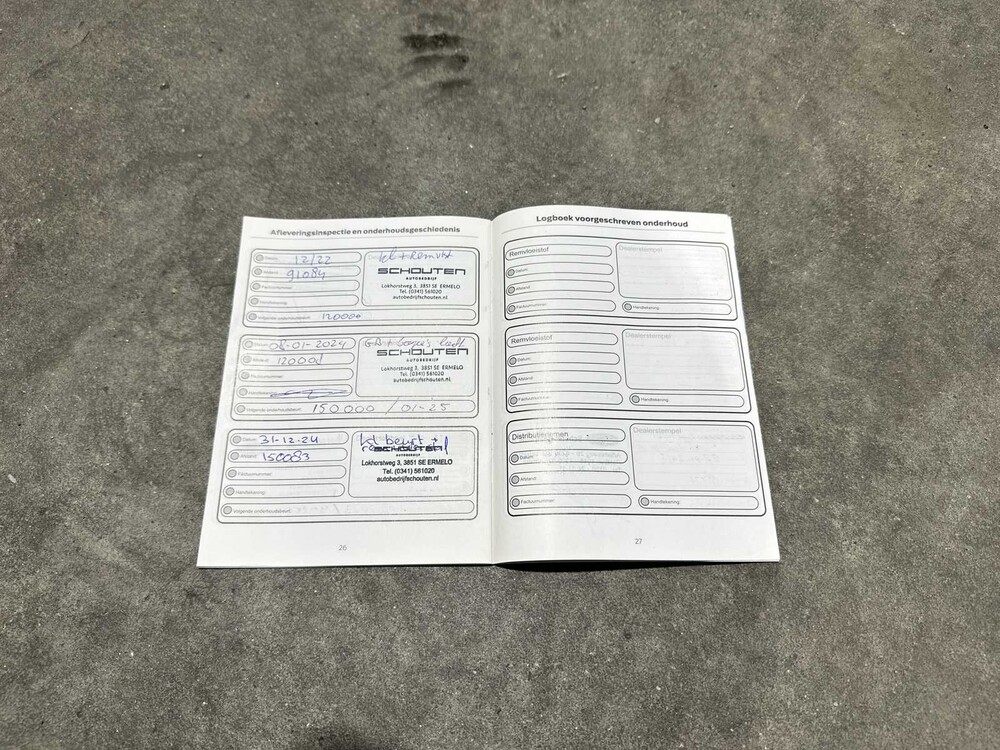 Afleveringsinspectie en onderhoudsgeschiedenis
Datum: 12/22
Afstand: 91084
Factuurnummer:
Handtekening:
Volgende onderhoudsbeurt: 120000
SCHOUTEN
AUTOBEDRIJF
Lokhorstweg 3, 3851 SE ERMELO
Tel. (0341) 561020
autobedrijfschouten.nl
Datum: 08-01-2024
Afstand: 120000
Factuurnummer:
Handtekening:
Volgende onderhoudsbeurt: 150000 / 01-25
SCHOUTEN
AUTOBEDRIJF
Lokhorstweg 3, 3851 SE ERMELO
Tel. (0341) 561020
autobedrijfschouten.nl
Datum: 31-12-24
Afstand: 150083
Factuurnummer:
Handtekening:
Volgende onderhoudsbeurt:
beurt +
SCHOUTEN
AUTOBEDRIJF
Lokhorstweg 3, 3851 SE ERMELO
Tel. (0341) 561020
autobedrijfschouten.nl
26
Logboek voorgeschreven onderhoud
Remvloeistof
Datum:
Afstand:
Factuurnummer:
Dealerstempel
Handtekening:
Remvloeistof
Datum:
Afstand:
Factuurnummer:
Dealerstempel
Handtekening:
Distributieriemen
Datum:
Afstand:
Factuurnummer:
Dealerstempel
Handtekening:
27